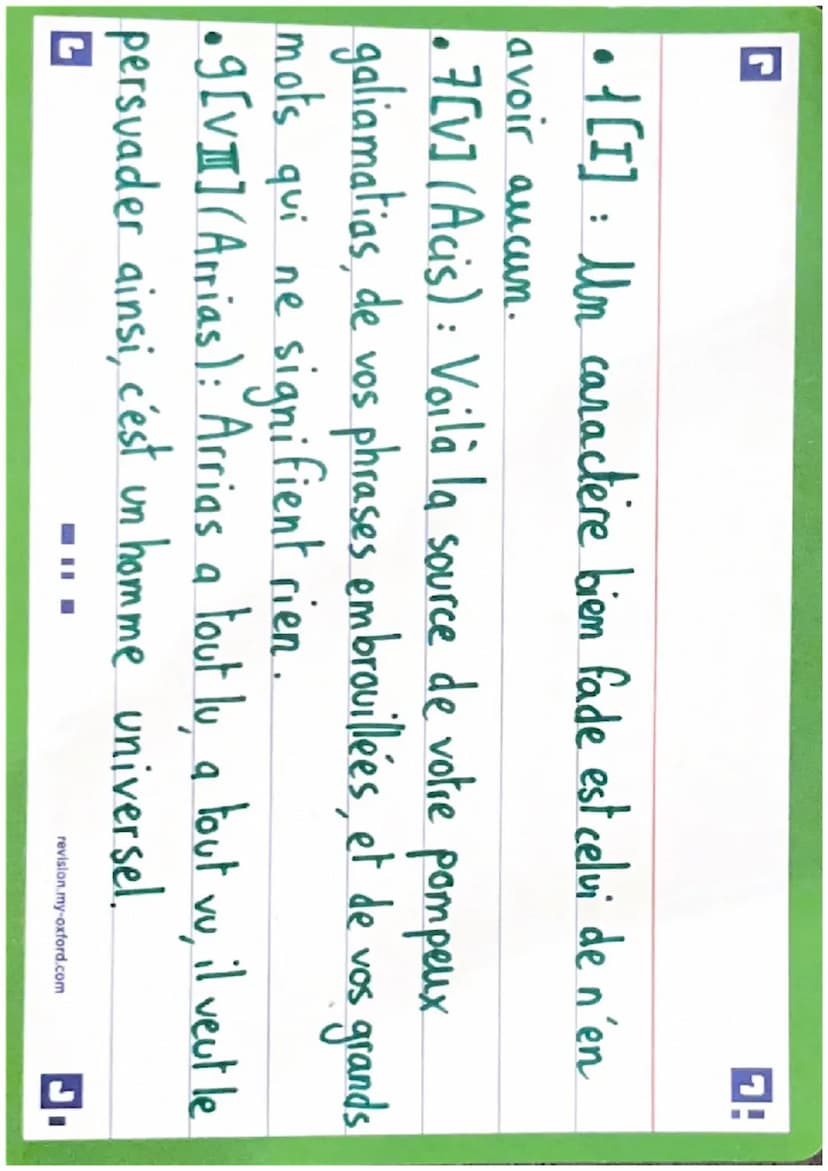 • 1[I] : Un caractère bien fade est celui de n'en
avoir aucun.
• 7[V] (Acis) : Voilà la source de votre pompeux
galiamatias, de vos phrases embrouillées, et de vos grands
mots qui ne signifient rien.
• 9[VIII] (Arrias) : Arrias a tout lu, a tout vu, il veut le
persuader ainsi, c'est un homme universel.
revision.my-oxford.com